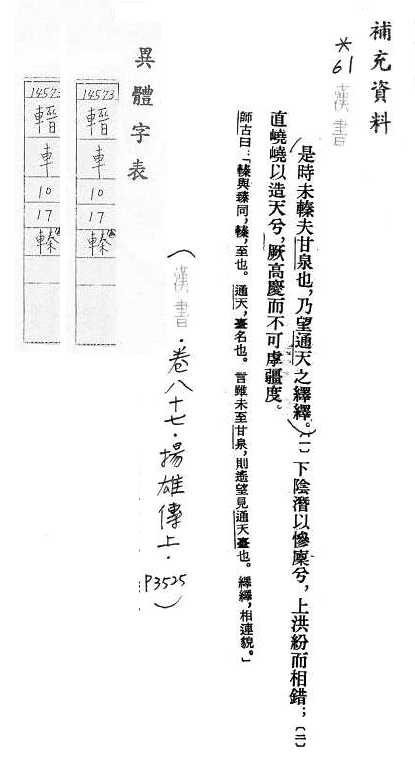 補充資料
*61 漢書
是時未轃夫甘泉也，乃望通天之繹繹。〔一〕下陰潛以慘廩兮，上洪紛而相錯；〔二〕
直嶢嶢以造天兮，厥高慶而不可虖疆度。
師古曰：「轃與臻同，轃，至也。通天，臺名也。言雖未至甘泉，則遙望見通天臺也。繹繹，相連貌。」
（漢書．卷八十七．揚雄傳上．P3525）
異體字表
14573
車
10
17
轃
14573
車
10
17
轃